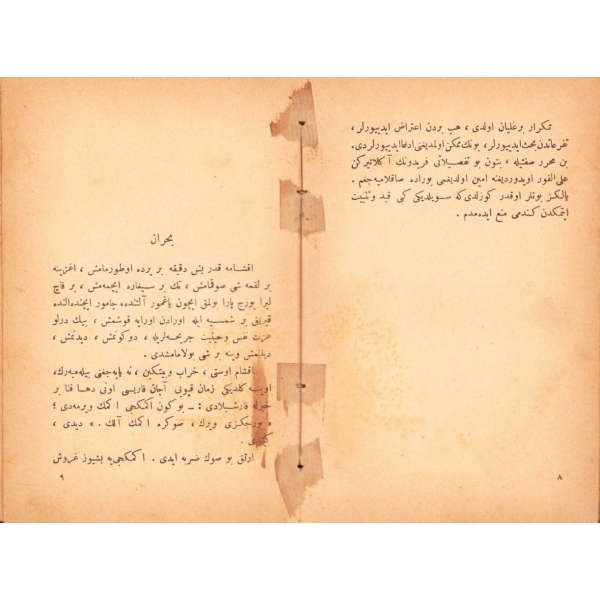 تکرار بر غلیان اولدی ، هپ بردن اعتراض ایدییورلر ،
تفرعاتدن بحث ایدییورلر ، بونك ممکن اولدیغنی ادعا ایدییورلردی .
بن محرر صفتیله ، بتون بو تفصیلاتی فریدونك آکلاتیرکن
علی الفور اویدوردیغنه امین اولدیغمی بوراده صاقلامیه جغم .
یالکز بونلر اوقدر کوزلدی که سویلدیکی کبی قید و تثبیت
ایتمکدن کندمی منع ایده مدم .
۸
بحران
اقشامه قدر بش دقیقه بر یرده اوطورمامش ، اغزینه
بر لقمه شی صوقمامش ، تك بر سیغاره ایچمه مش ، بر قاچ
لیرا بورج پارا بولمق ایچون یاغمور آلتنده ، چامور ایچنده ، النده
قیریق بر شمسیه ایله اورادن اورایه قوشمش ، بیك درلو
عزت نفس وحیثیت جریحه لریله ، دوکونمش ، دیدنمش ،
دیلنمش وینه بر شی بولامامشدی .
اقشام اوستی ، خراب وبیتکین ، نه یاپه جغنی بیله میه رك ،
اوینه کلدیکی زمان قپویی آچان قاریسی اونی دها فنا بر
خبرله قارشیلادی : ــ بو کون اکمکجی اکمك ویرمه دی ؛
« بورجکزی ویرك ، صوکره اکمك آلك . » دیدی ،
کیتدی .
ارتق بو صوك ضربه ایدی . اکمکجی یه بشیوز غروش
۹